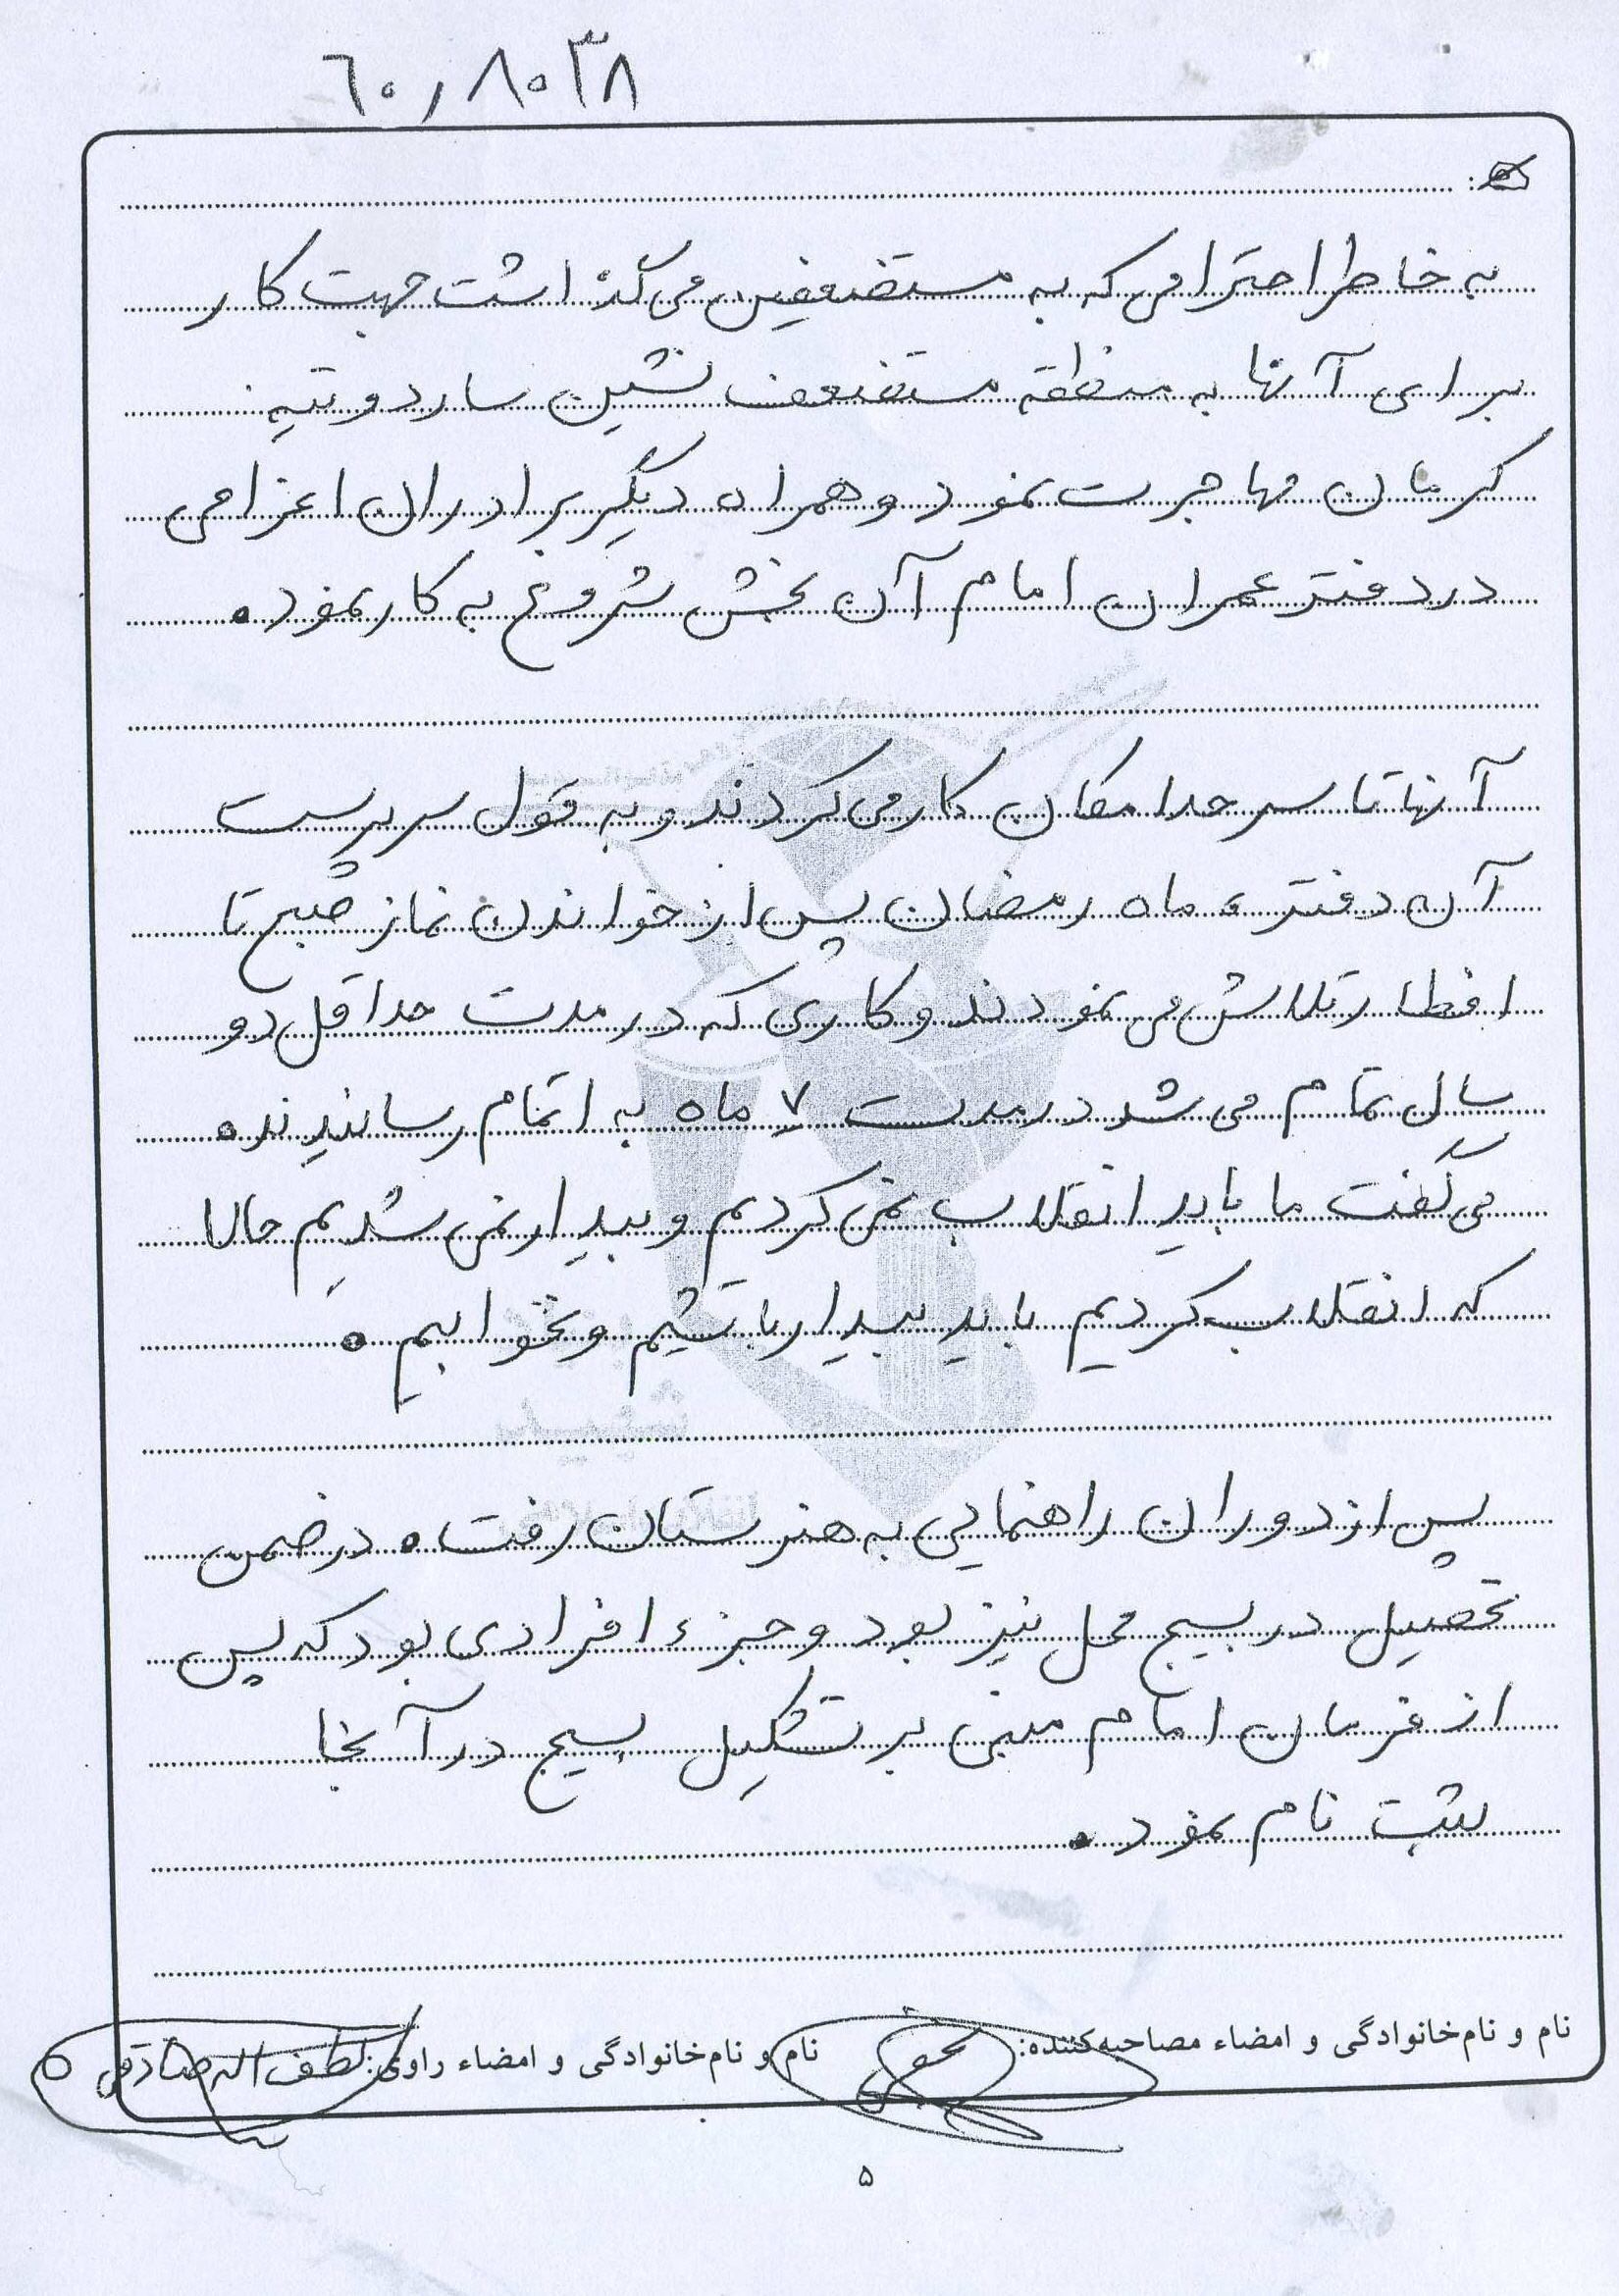 ۶۰،۸۰۳۸
به خاطر احترامی که به مستضعفین می گذاشت جهت کار
برای آنها به منطقه مستضعف نشین ساردوئیه
کرمان مهاجرت نمود و همراه دیگر برادران اعزامی
در دفتر عمران امام آن بخش شروع به کار نمود.
آنها تا سر حد امکان کار می کردند و به قول سرپرست
آن دفتر، ماه رمضان پس از خواندن نماز صبح تا
افطار تلاش می نمودند و کاری که در مدت حداقل دو
سال تمام می شد در مدت ۷ ماه به اتمام رسانیدند.
می گفت ما باید انقلاب نمی کردیم و بیدار نمی شدیم حالا
که انقلاب کردیم باید بیدار باشیم و نخوابیم.
پس از دوران راهنمایی به هنرستان رفت. در ضمن
تحصیل در بسیج محل نیز بود و جزء افرادی بود که پس
از فرمان امام مبنی بر تشکیل بسیج در آنجا
ثبت نام نمود.
نام و نام‌خانوادگی و امضاء مصاحبه‌کننده: نام و نام‌خانوادگی و امضاء راوی: لطف اله صادقی
۵